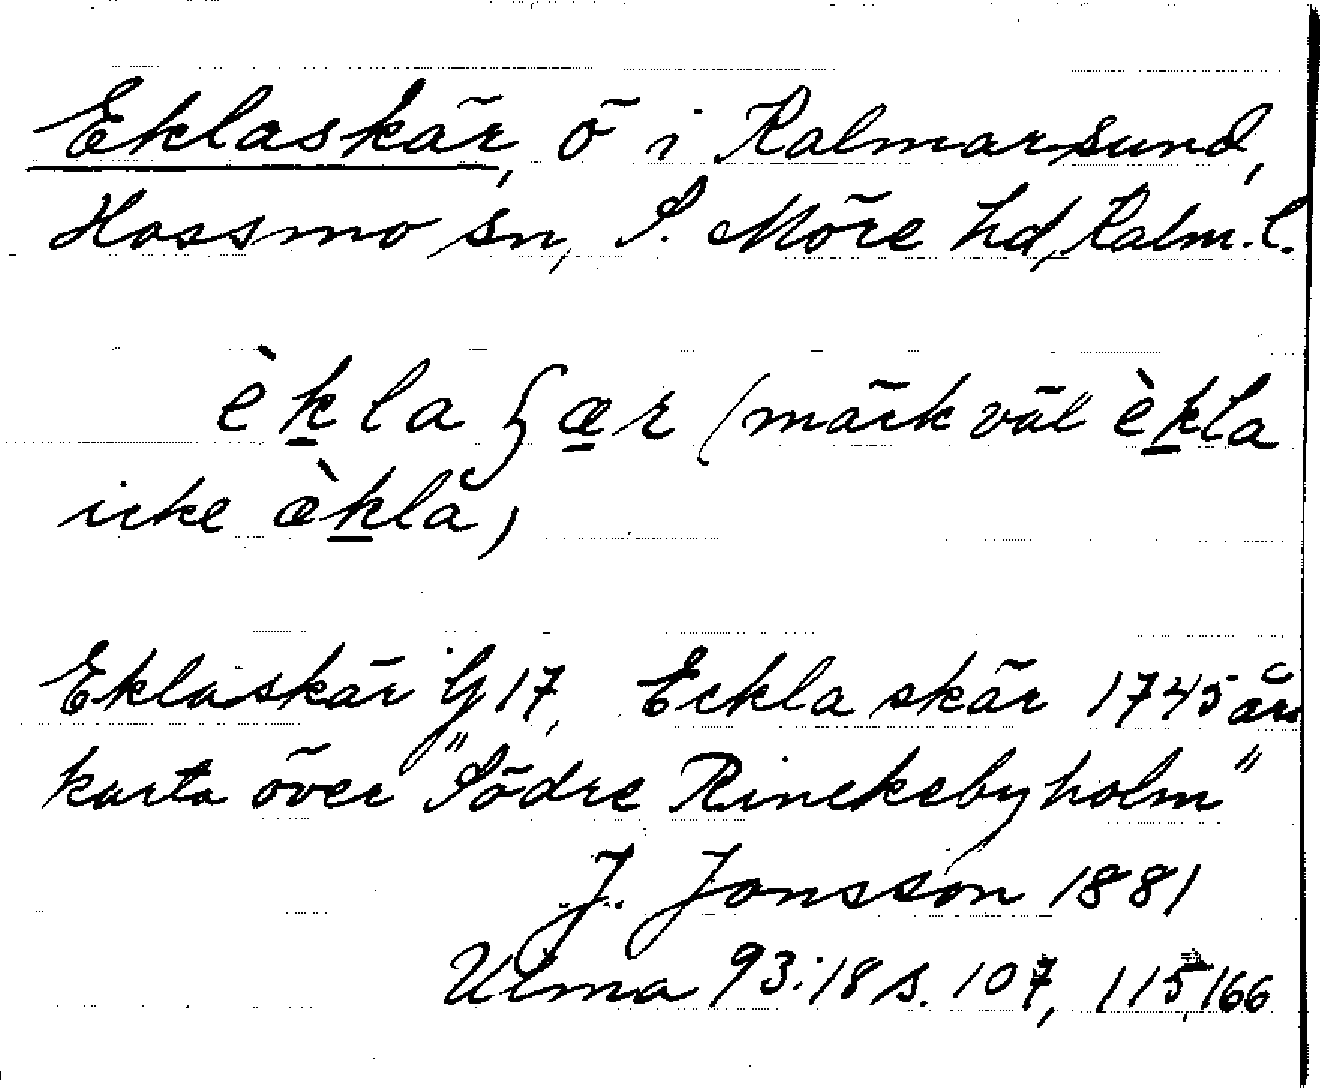 Eklaskär, ö i Kalmarsund,
Hossmo sn, S. Möre hd, Kalm. l.
èkla ʃær (märk väl èkla
icke æ̀kla)
Eklaskär G 17, Eckla skär 1745 års
karta över "Södre Rinckebyholm"
J. Jonsson 1881
Ulma 93:18 s. 107, 115, 166